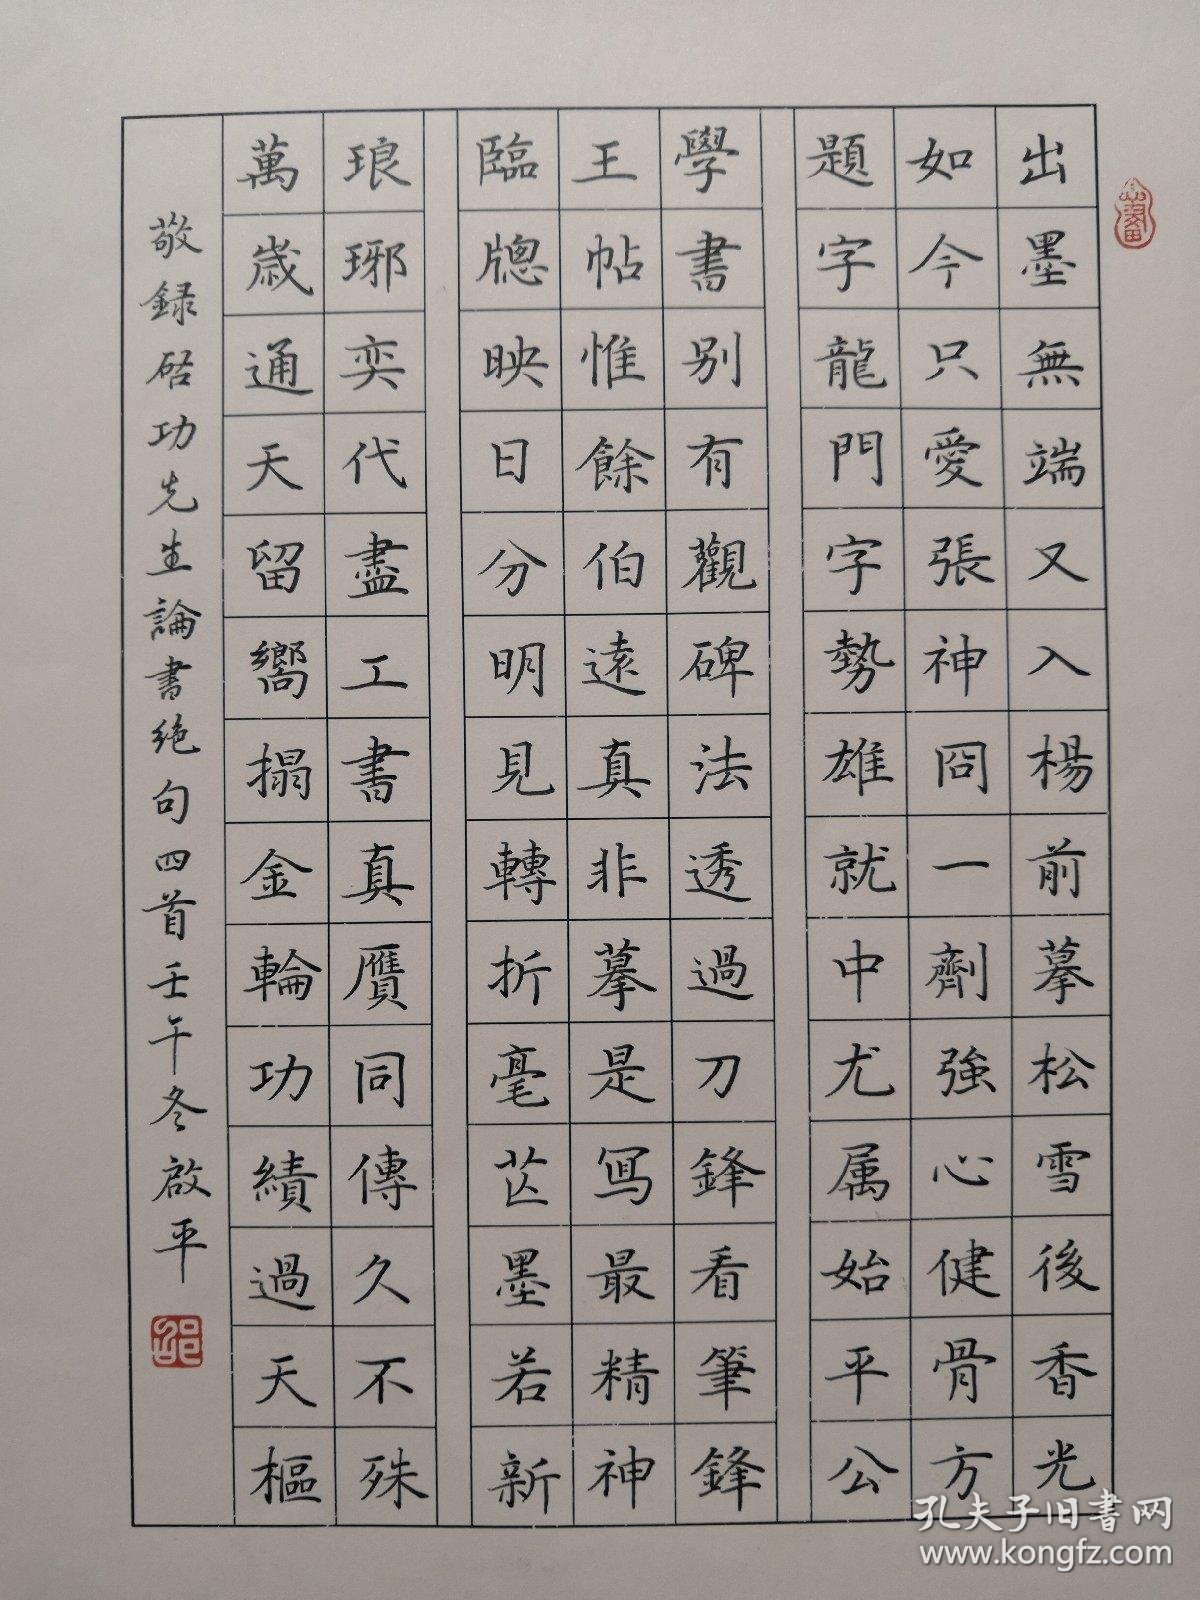 出墨無端又入楊前摹松雪後香光
如今只愛張神冏一劑強心健骨方
題字龍門字勢雄就中尤属始平公
學書别有觀碑法透過刀鋒看筆鋒
王帖惟餘伯遠真非摹是冩最精神
臨牕映日分明見轉折毫芒墨若新
琅琊奕代盡工書真贋同傳久不殊
萬歲通天留嚮搨金輪功績過天樞
敬録啓功先生論書绝句四首壬午冬啟平
孔夫子旧书网
www.kongfz.com